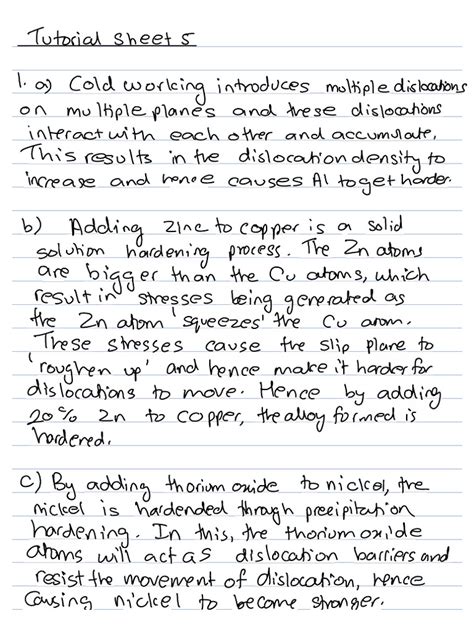 Tutorial Sheet 5
1. a) Cold working introduces multiple dislocations
on multiple planes and these dislocations
interact with each other and accumulate.
This results in the dislocation density to
increase and hence causes Al to get harder.
b) Adding zinc to copper is a solid
solution hardening process. The Zn atoms
are bigger than the Cu atoms, which
result in stresses being generated as
the Zn atom 'squeezes' the Cu arom.
These stresses cause the slip plane to
'roughen up' and hence make it harder for
dislocations to move. Hence by adding
20% Zn to copper, the alloy formed is
hardened.
c) By adding thorium oxide to nickel, the
nickel is hardended through precipitation
hardening. In this, the thorium oxide
atoms will act as dislocation barriers and
resist the movement of dislocation, hence
causing nickel to become stronger.